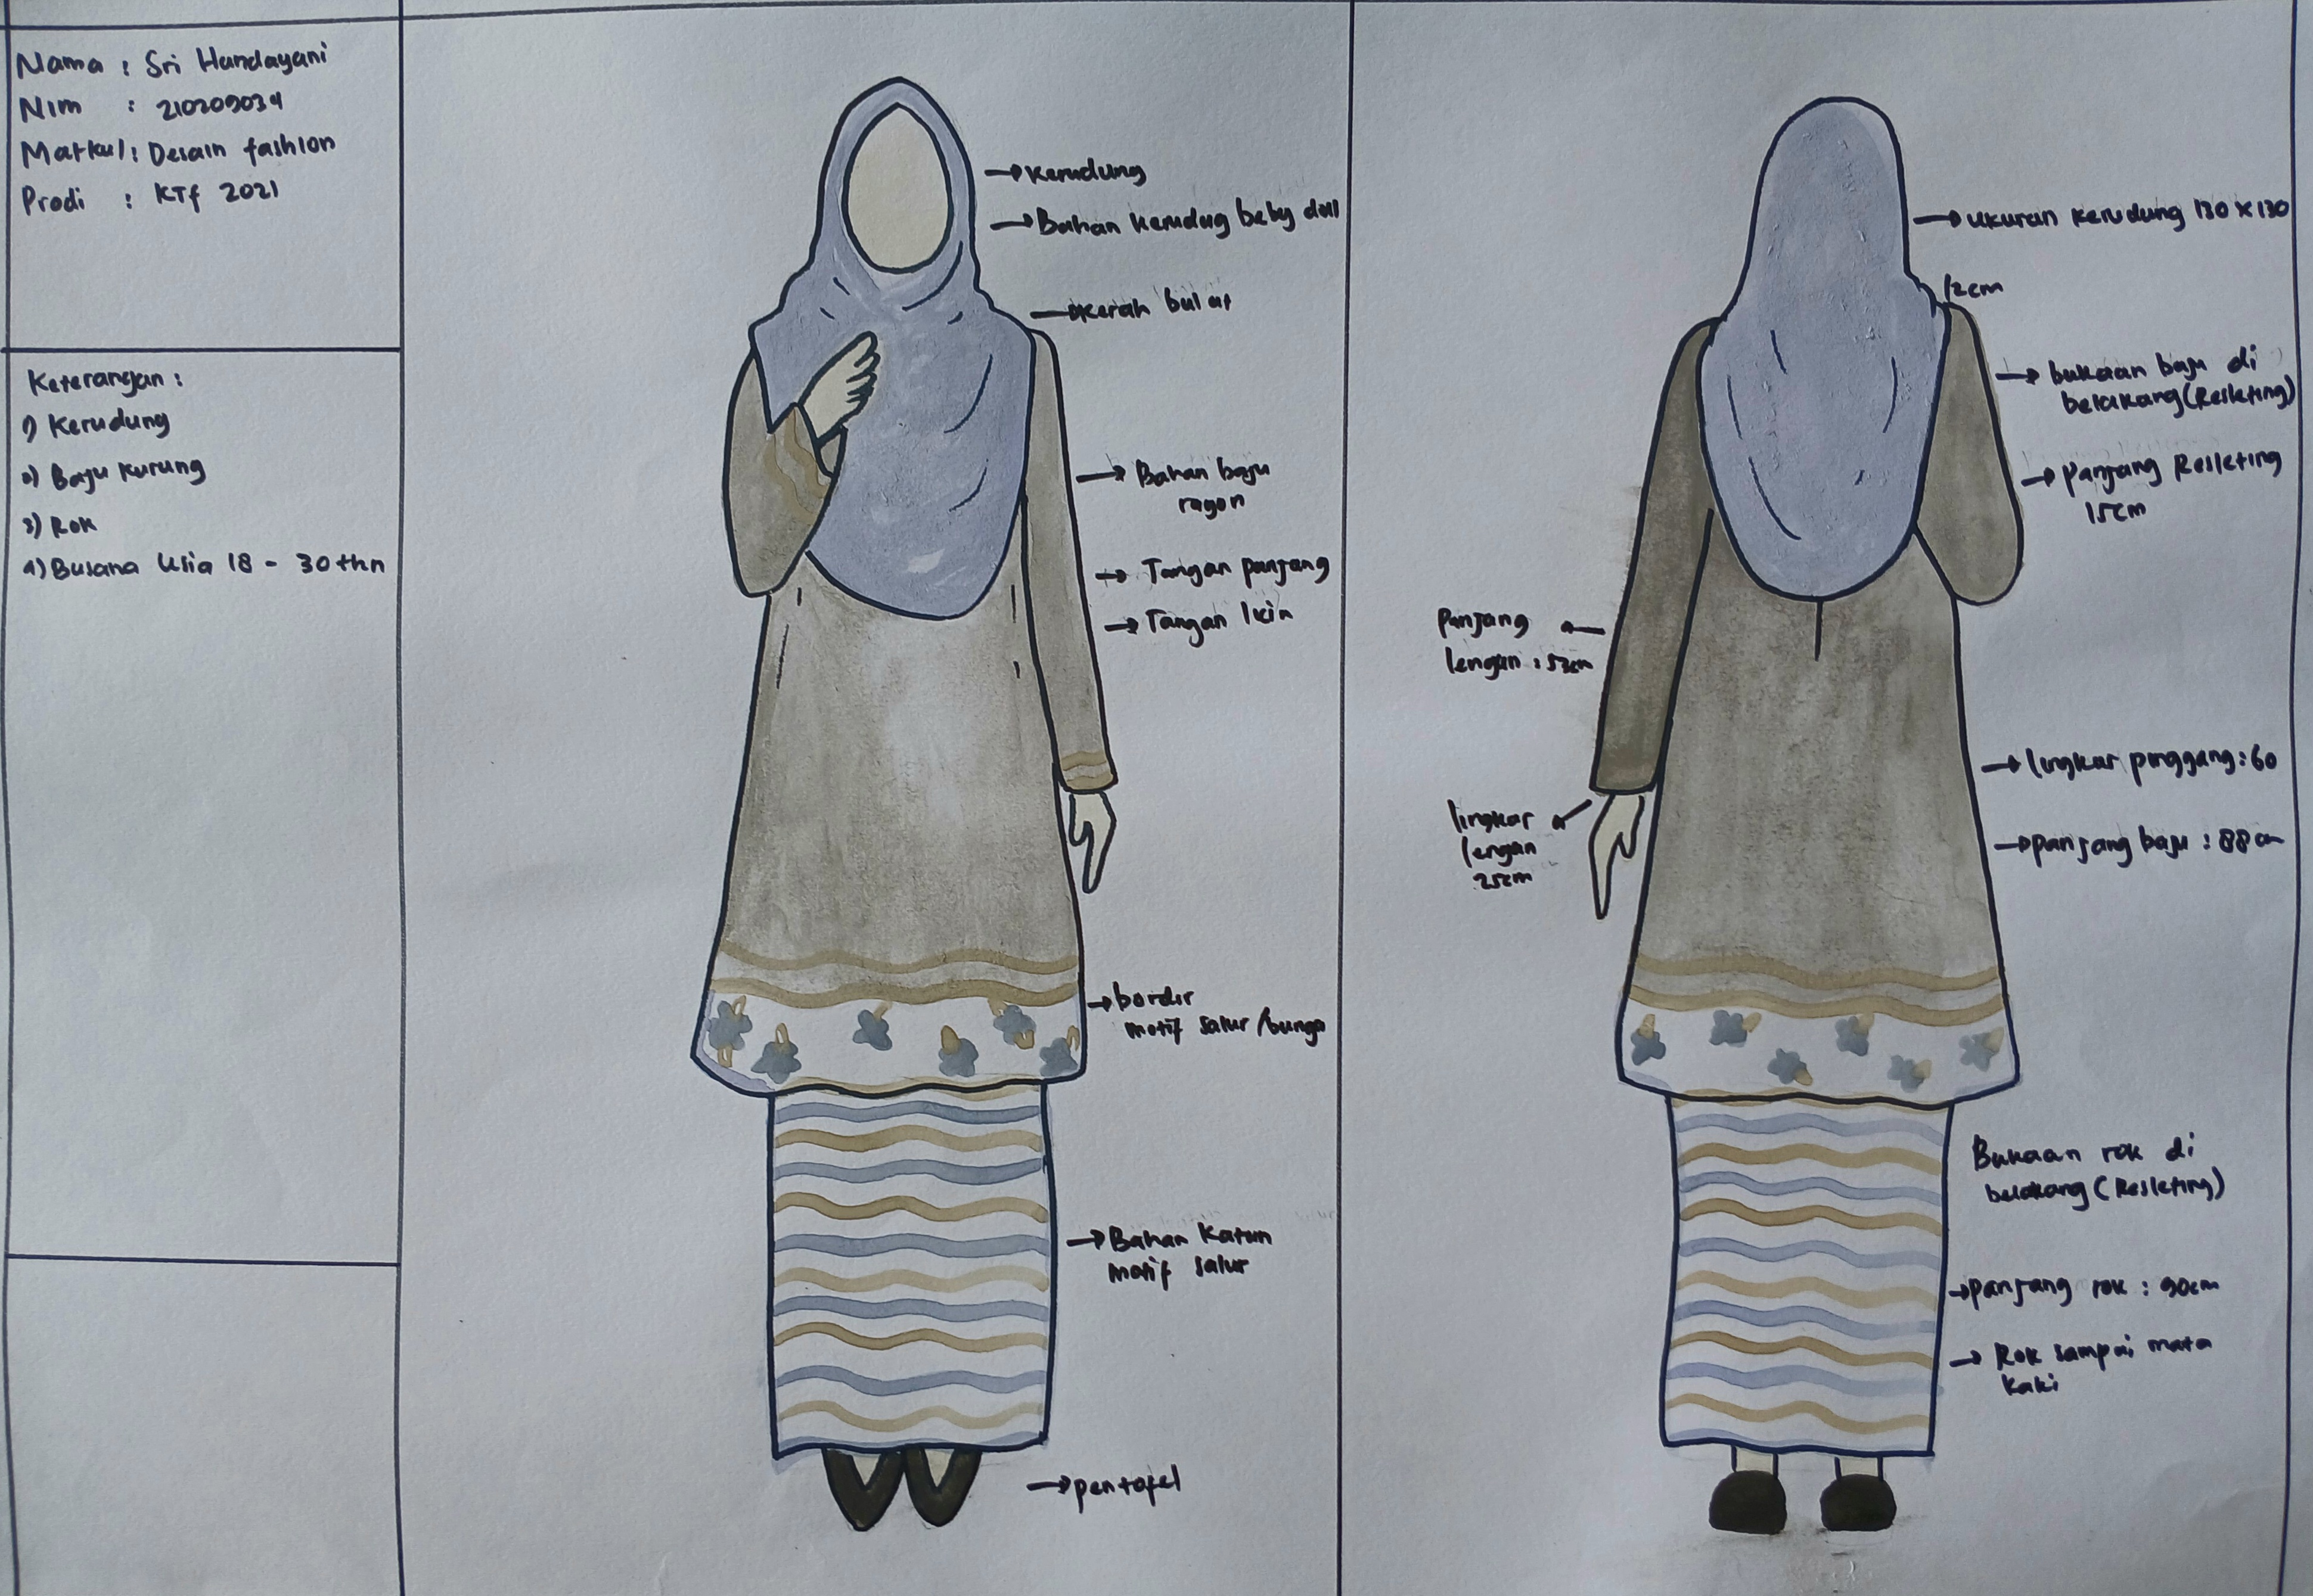 Nama : Sri Handayani
Nim : 210209034
Matkul : Desain fashion
Prodi : KTf 2021
Keterangan :
1) Kerudung
2) Baju kurung
3) Rok
4) Busana Usia 18 - 30 thn
kerudung
Bahan kerudug beby doll
kerah bulat
Bahan baju
rayon
Tangan panjang
Tangan
bordir
motif salur /bunga
Bahan Katun
motif salur
pentofel
ukuran kerudung 130 x 130
12cm
bukaan baju di
belakang (Resleting)
panjang Resleting
15cm
panjang
lengan : 53cm
lingkar
lengan
25cm
lingkar pinggang : 60
panjang baju : 88 cm
Bukaan rok di
belakang ( Resleting)
panjang rok : 90cm
Rok sampai mata
kaki